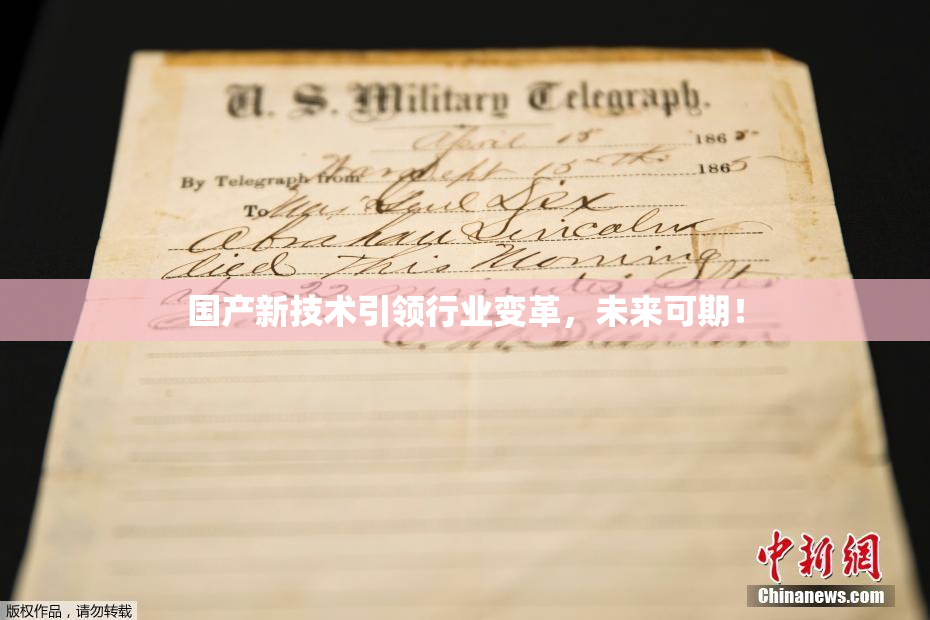 U. S. Military Telegraph.
April 15 1865
By Telegraph from War Dept 15th 1865
To Maj Genl Dix
Abraham Lincoln
died This Morning
at 22 minutes after
国产新技术引领行业变革，未来可期！
中新网
Chinanews.com
版权作品，请勿转载